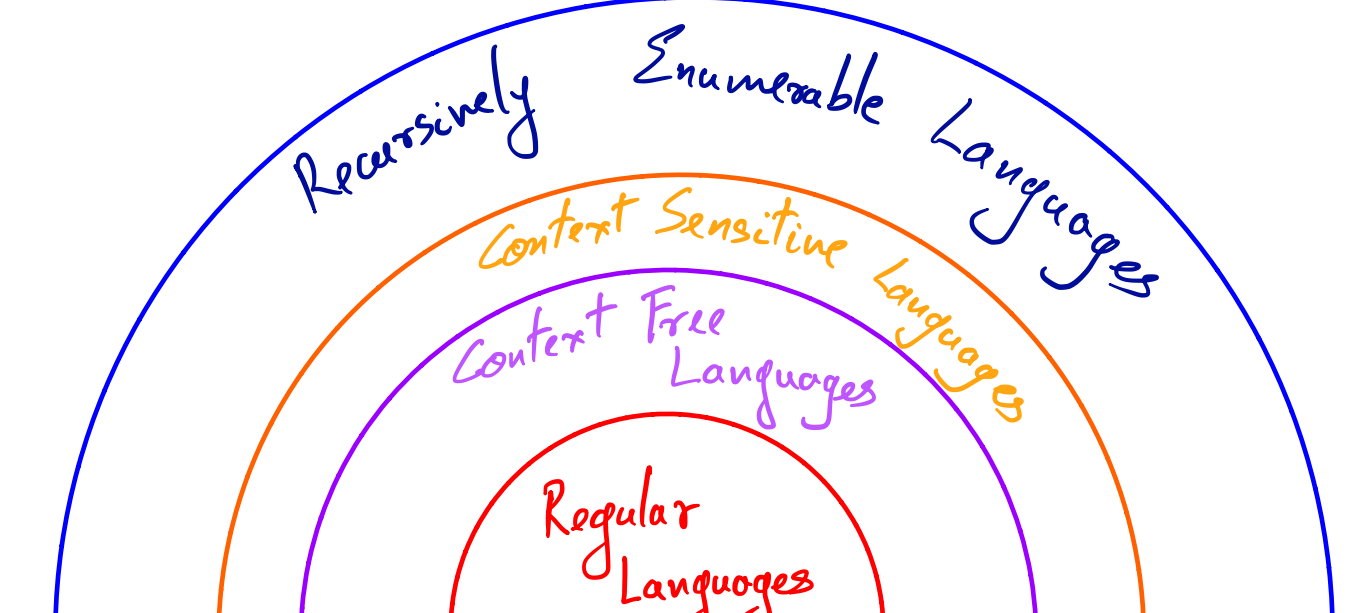 Recursively Enumerable Languages
Context Sensitive Languages
Context Free
Languages
Regular
Languages